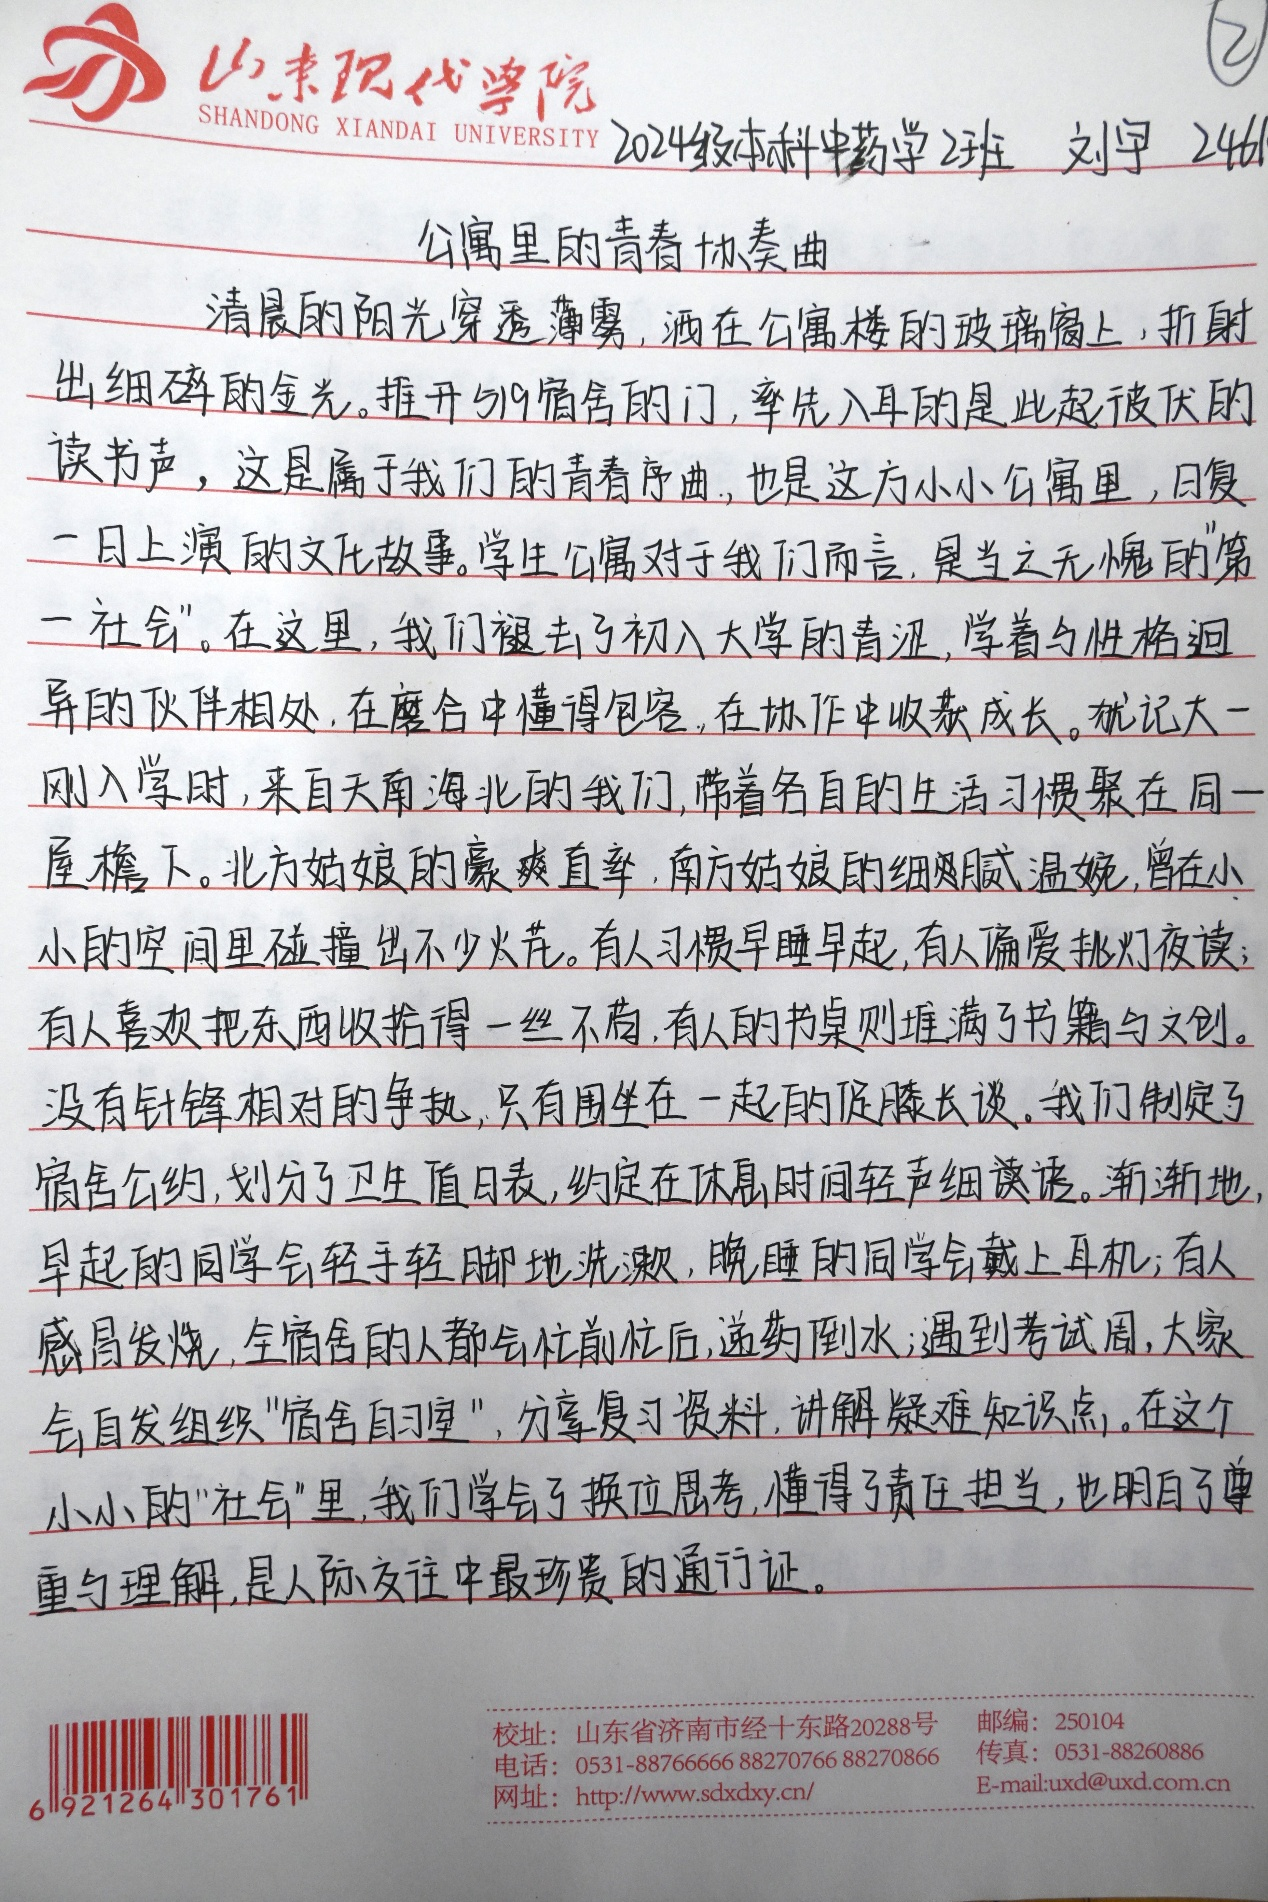 ②
山东现代学院
SHANDONG XIANDAI UNIVERSITY
2024级本科中药学2班 刘宇 2461
公寓里的青春协奏曲
清晨的阳光穿透薄雾,洒在公寓楼的玻璃窗上,折射
出细碎的金光。推开519宿舍的门,率先入耳的是此起彼伏的
读书声,这是属于我们的青春序曲,也是这方小小公寓里,日复
一日上演的文化故事。学生公寓对于我们而言,是当之无愧的"第
一社会"。在这里,我们褪去了初入大学的青涩,学着与性格迥
异的伙伴相处,在磨合中懂得包容,在协作中收获成长。犹记大一
刚入学时,来自天南海北的我们,带着各自的生活习惯聚在同一
屋檐下。北方姑娘的豪爽直率,南方姑娘的细腻温婉,曾在小
小的空间里碰撞出不少火花。有人习惯早睡早起,有人偏爱挑灯夜读;
有人喜欢把东西收拾得一丝不苟,有人的书桌则堆满了书籍与文创。
没有针锋相对的争执,只有围坐在一起的促膝长谈。我们制定了
宿舍公约,划分了卫生值日表,约定在休息时间轻声细读语。渐渐地,
早起的同学会轻手轻脚地洗漱,晚睡的同学会戴上耳机;有人
感冒发烧,全宿舍的人都会忙前忙后,递药倒水;遇到考试周,大家
会自发组织"宿舍自习室",分享复习资料,讲解疑难知识点。在这个
小小的"社会"里,我们学会了换位思考,懂得了责任担当,也明白了尊
重与理解,是人际交往中最珍贵的通行证。
6 921264 301761
校址:山东省济南市经十东路20288号 邮编:250104
电话:0531-88766666 88270766 88270866 传真:0531-88260886
网址:http://www.sdxdxy.cn/ E-mail:uxd@uxd.com.cn